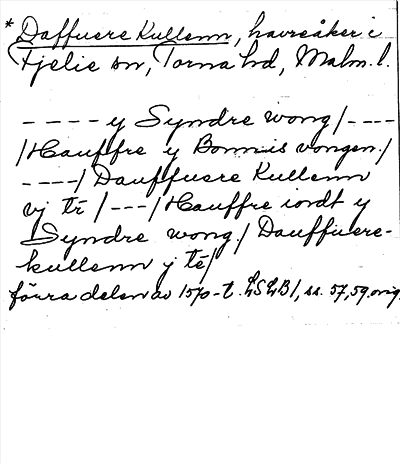 * Dauffuere Kullenn, havreåker i
Fjelie sn, Torna hd, Malm. l.
- - - - y Syndre wong / - - - -
/ Hauffre y Bonnis vongen /
- - - - / Dauffuere Kullenn
vj tē / - - - / Hauffre iordt y
Syndre wong. / Dauffuere-
kullenn y tē /
förra delen av 1570-t. LSLB 1, ss. 57, 59. orig.